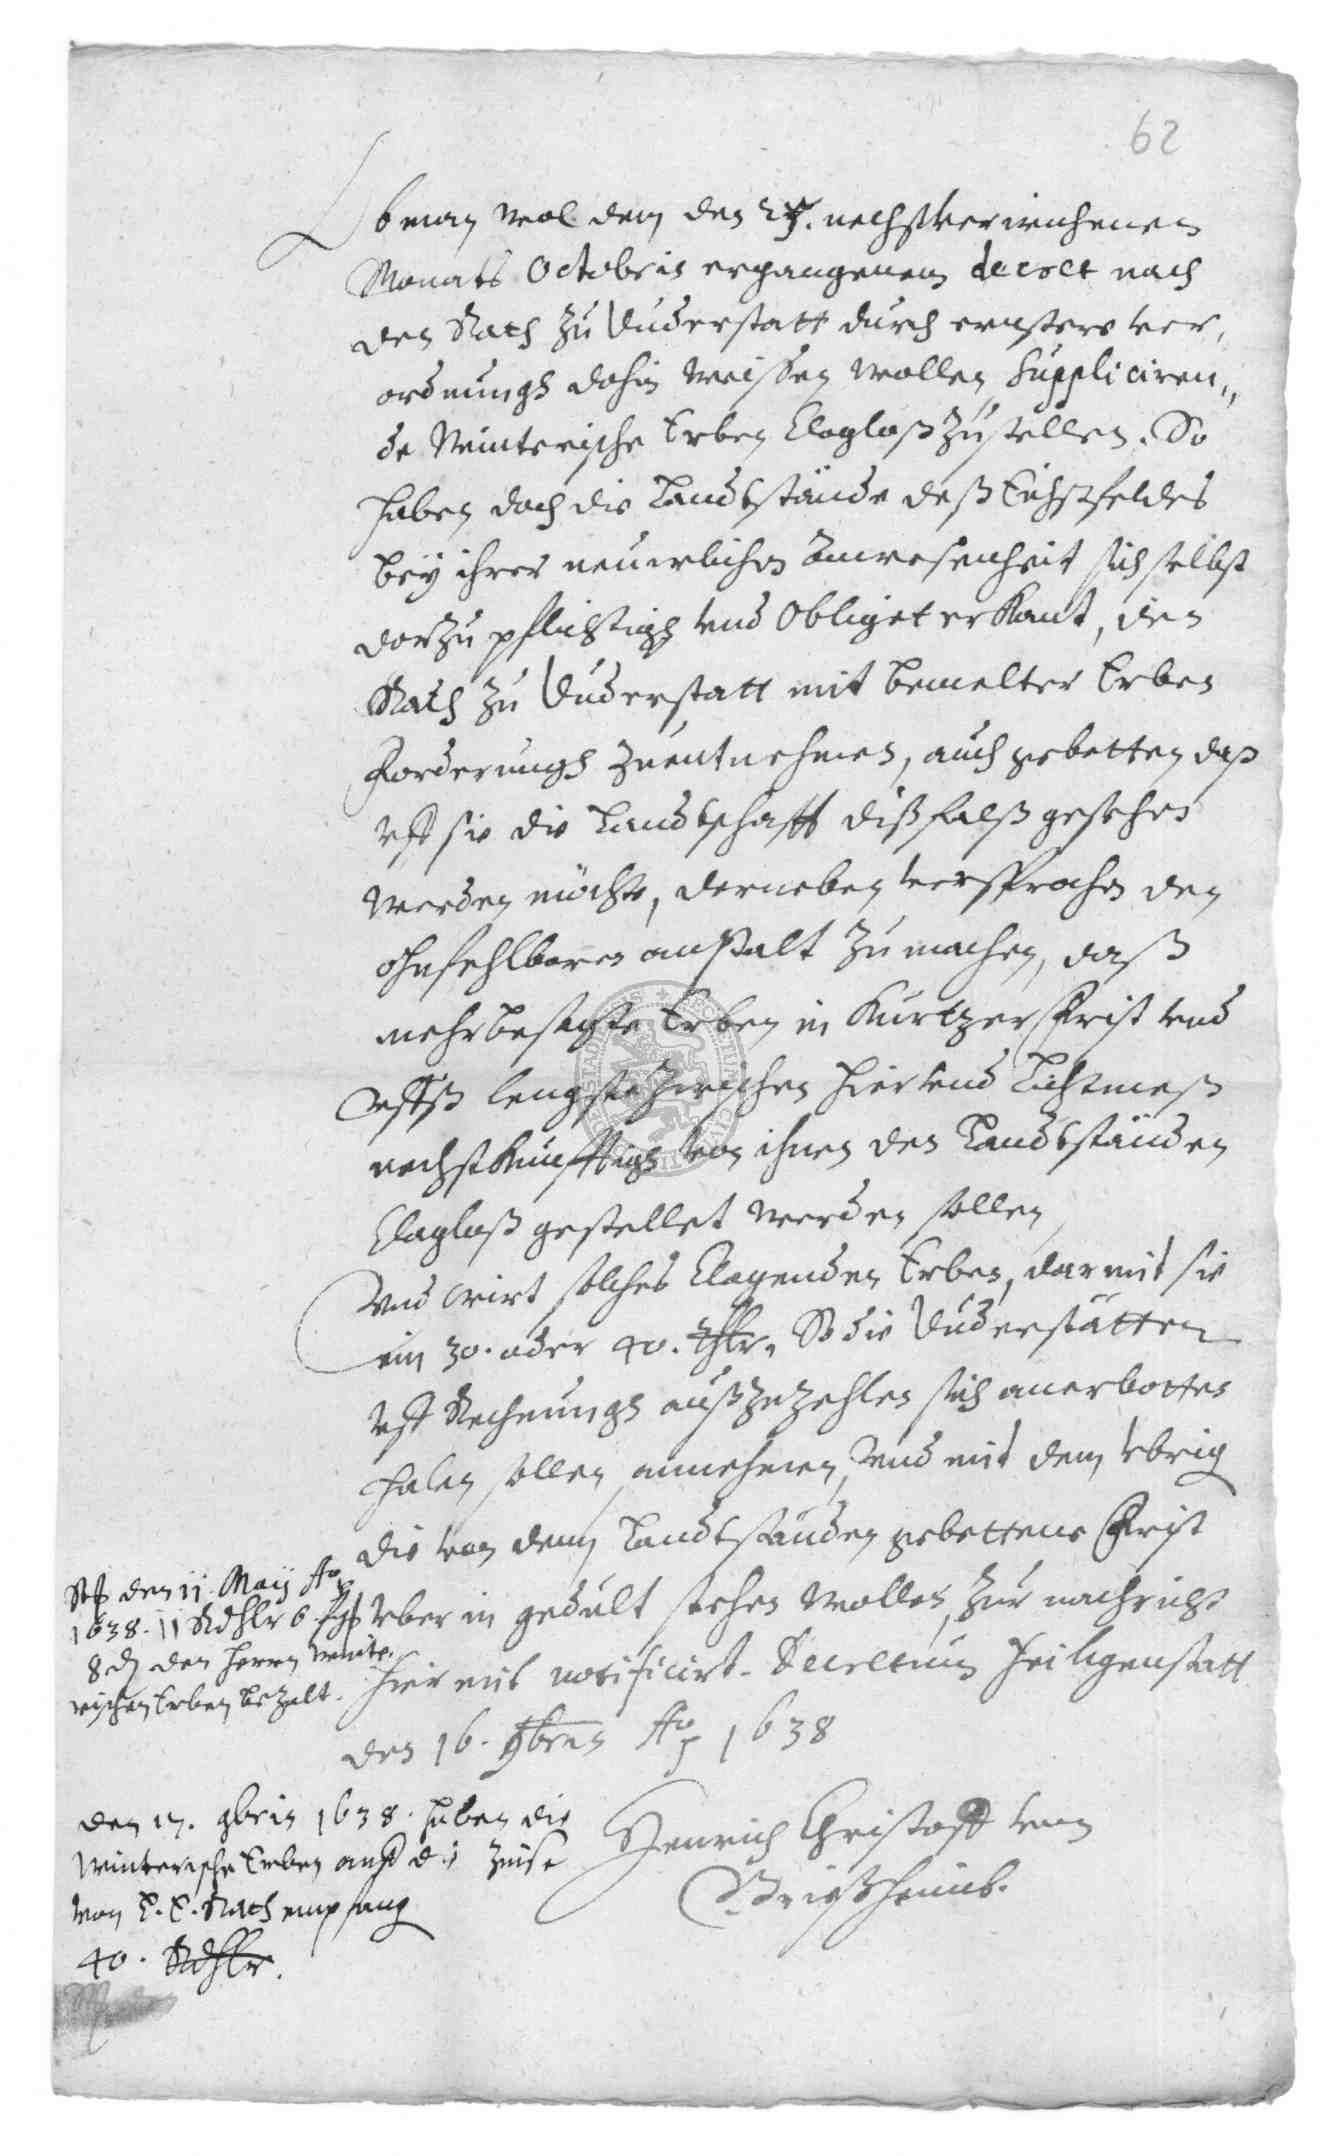 62
Ob man wol dem den 27. nechstverwichenen
Monats Octobris ergangenem decret nach
den Rath zu Duderstatt durch ernstere ver,
ordnungh dahin weissen wollen, Suppliciren„
de Winterische Erben Clagloß zustellen. So
haben doch die Landtstände deß Eichsfeldes
bey ihrer neuerlichen Anwesenheit sich selbst
darzu pflichtigh vnd Obliget erkant, den
Rath zu Duderstatt mit bemelter Erben
Forderungh zuentnehmen, auch gebetten daß
vff sie die Landtschafft dißfalß gesehen
werden möchte, darneben versprochen den
ohnfehlbaren anstalt zu machen, daß
mehrbesagte Erben in Kurtzer Frist vnd
vffs lengste zwischen hier vnd Lichtmeß
nechstkünfftigh von ihnen den Landtständen
Clagloß gestellet werden sollen,
Vnd wirt solches Clagenden Erben, darmit sie
ein 30. oder 40. thlr. So die Duderstätter
vff Rechnungh außzuzehlen sich anerbotten
haben sollen annehmen, vnd mit dem vbrig
die von dem Landtständen gebettene Frist
vber in gedult stehen wollen, zur nachricht
hiermit notificirt. Decretum Heiligenstatt
den 16. 9bris Ao 1638
Henrich Christoff von
Griesheimb.
den 11. Maij Ao
1638. 11 Rthlr 6 ggl
8 d den Herrn Winte,
rischen Erben bezalt.
den 17. 9bris 1638. haben die
Winterische Erben auff die Zinse
von E. E. Rath empfang
40. Rthlr.